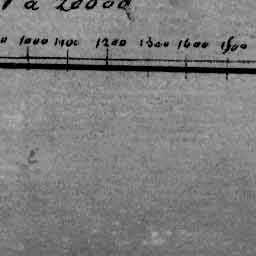 à 20000
1000 1100 1200 1300 1400 1500